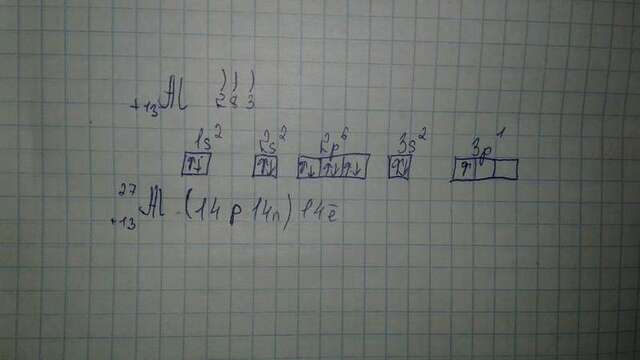 +13Al 2 8 3
1s² 2s² 2p⁶ 3s² 3p¹
↑↓ ↑↓ ↑↓ ↑↓ ↑↓ ↑↓ ↑
27 +13 Al (14p 14n) 14ē